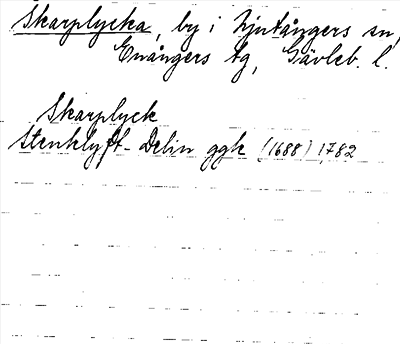 Skarplycka, by i Njutångers sn,
Enångers tg, Gävleb. l.
Skarplyck
Stenklyft - Delin ggk (1688) 1782